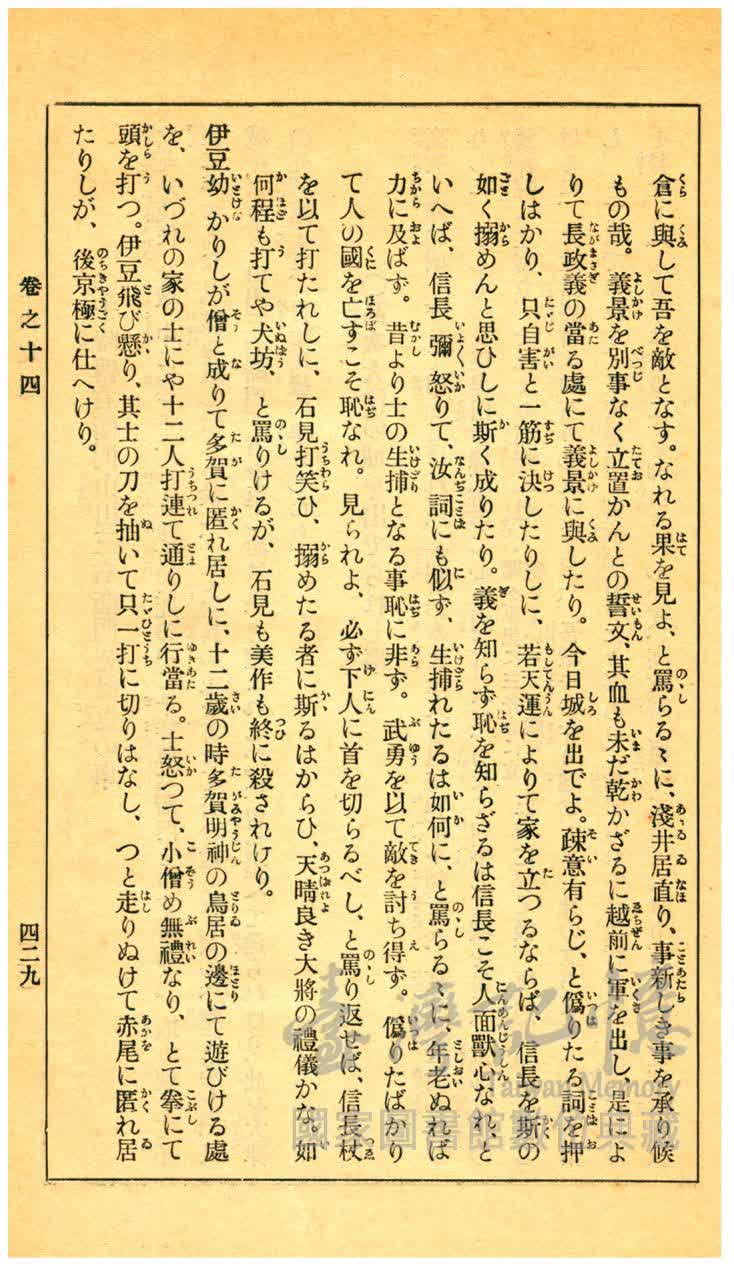 倉に與して吾を敵となす。なれる果を見よ、と罵らるゝに、淺井居直り、事新しき事を承り候
もの哉。義景を別事なく立置かんとの誓文、其血も未だ乾かざるに越前に軍を出し、是によ
りて長政義の當る處にて義景に與したり。今日城を出でよ。疎意有らじ、と僞りたる詞を押
しはかり、只自害と一筋に決したりしに、若天運によりて家を立つるならば、信長を斯の
如く搦めんと思ひしに斯く成りたり。義を知らず恥を知らざるは信長こそ人面獸心なれ、と
いへば、信長彌怒りて、汝詞にも似ず、生捕れたるは如何に、と罵らるゝに、年老ぬれば
力に及ばず。昔より士の生捕となる事恥に非ず。武勇を以て敵を討ち得ず。僞りたばかり
て人の國を亡すこそ恥なれ。見られよ、必ず下人に首を切らるべし、と罵り返せば、信長杖
を以て打たれしに、石見打笑ひ、搦めたる者に斯るはからひ、天晴良き大將の禮儀かな。如
何程も打てや犬坊、と罵りけるが、石見も美作も終に殺されけり。
伊豆幼かりしが僧と成りて多賀に匿れ居しに、十二歳の時多賀明神の鳥居の邊にて遊びける處
を、いづれの家の士にや十二人打連て通りしに行當る。士怒つて、小僧め無禮なり、とて拳にて
頭を打つ。伊豆飛び懸り、其士の刀を抽いて只一打に切りはなし、つと走りぬけて赤尾に匿れ居
たりしが、後京極に仕へけり。
卷之十四
四二九
臺灣記憶
Taiwan Memory
國家圖書館數位典藏